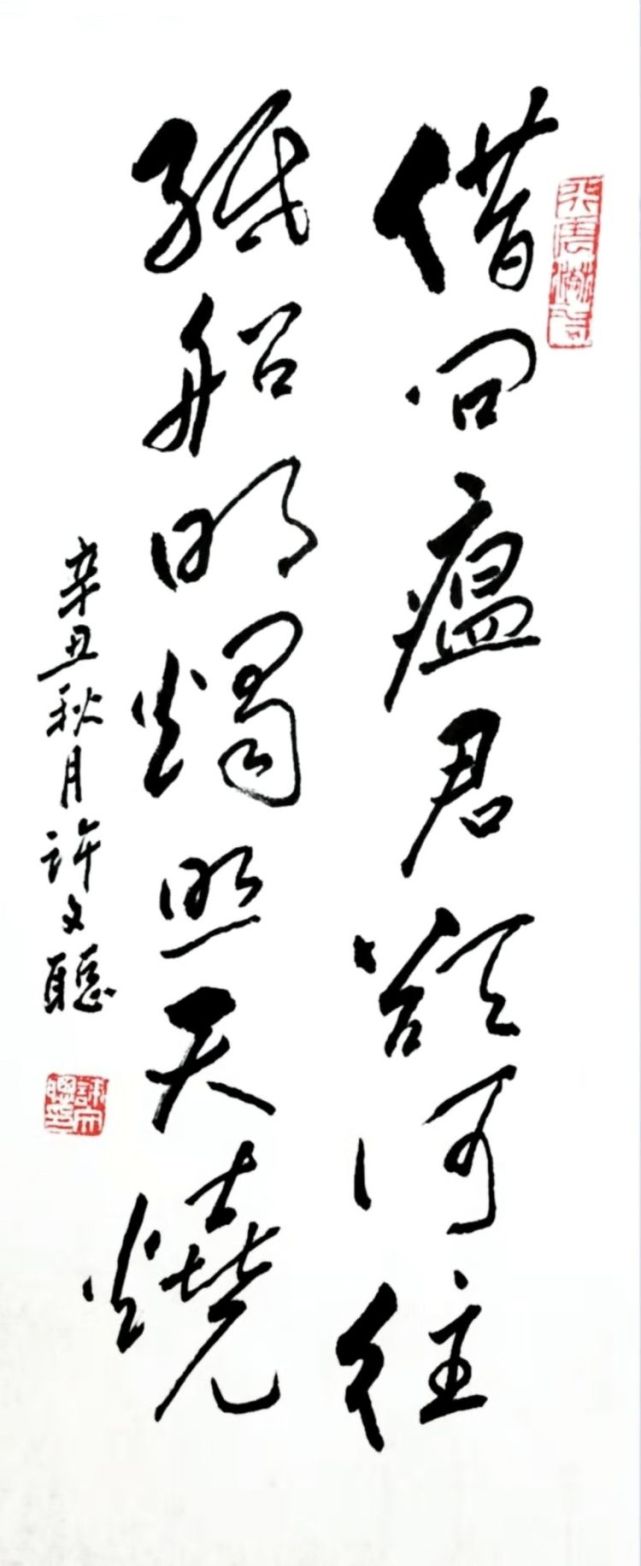 借问瘟君欲何往
纸船明烛照天燒
辛丑秋月许文聪